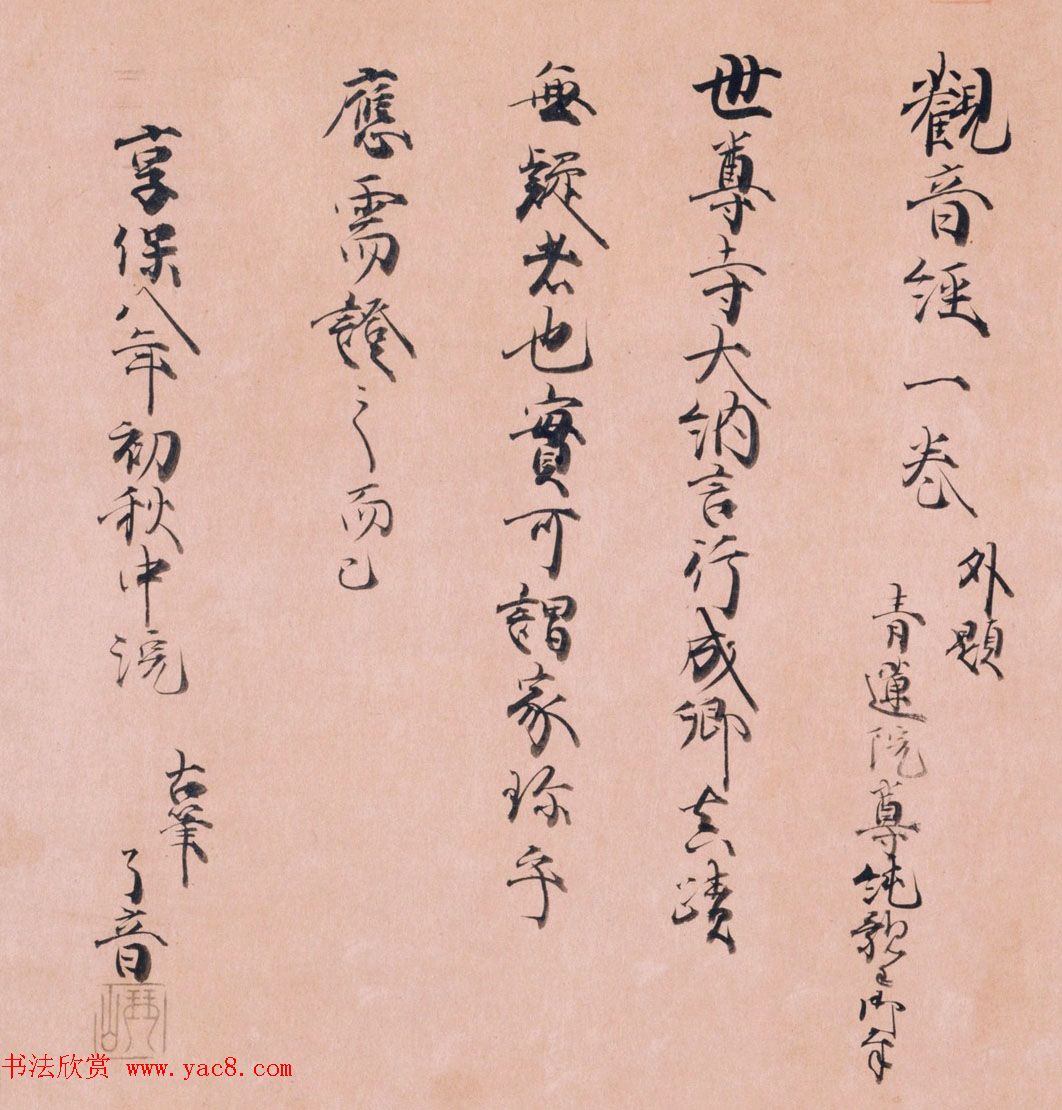 觀音經一卷
外題
青蓮院尊純親王御筆
世尊寺大納言行成卿真蹟
無疑者也實可謂家珍乎
應需證之而已
享保八年初秋中浣
古筆
了音
书法欣赏 www.yac8.com